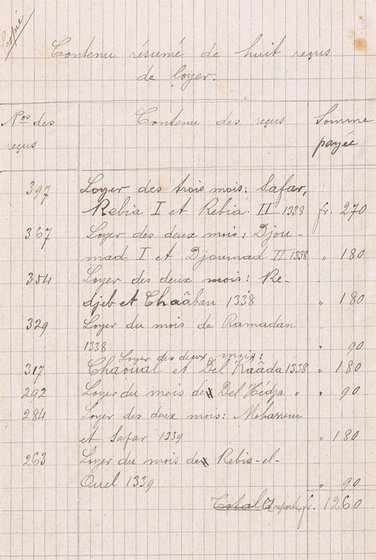 Copié
Contenu résumé de huit reçus
de loyer.
Nos des Contenu des reçus Somme
reçus payée
397 Loyer des trois mois: Safar,
Rebia I et Rebia II 1338 fr. 270
367 Loyer des deux mois: Djou-
mad I et Djoumad II 1338 " 180
354 Loyer des deux mois: Re-
djeb et Chaâban 1338 " 180
329 Loyer du mois de Ramadan
1338 " 90
Loyer des deux mois:
317 Chaoual et Del Kaâda 1338 " 180
292 Loyer du mois de Del Hedja " " 90
284 Loyer des deux mois: Moharrem
et Safar 1339 " 180
263 Loyer du mois de Rebia-el-
Ouel 1339 " 90
Total A reporter fr. 1260